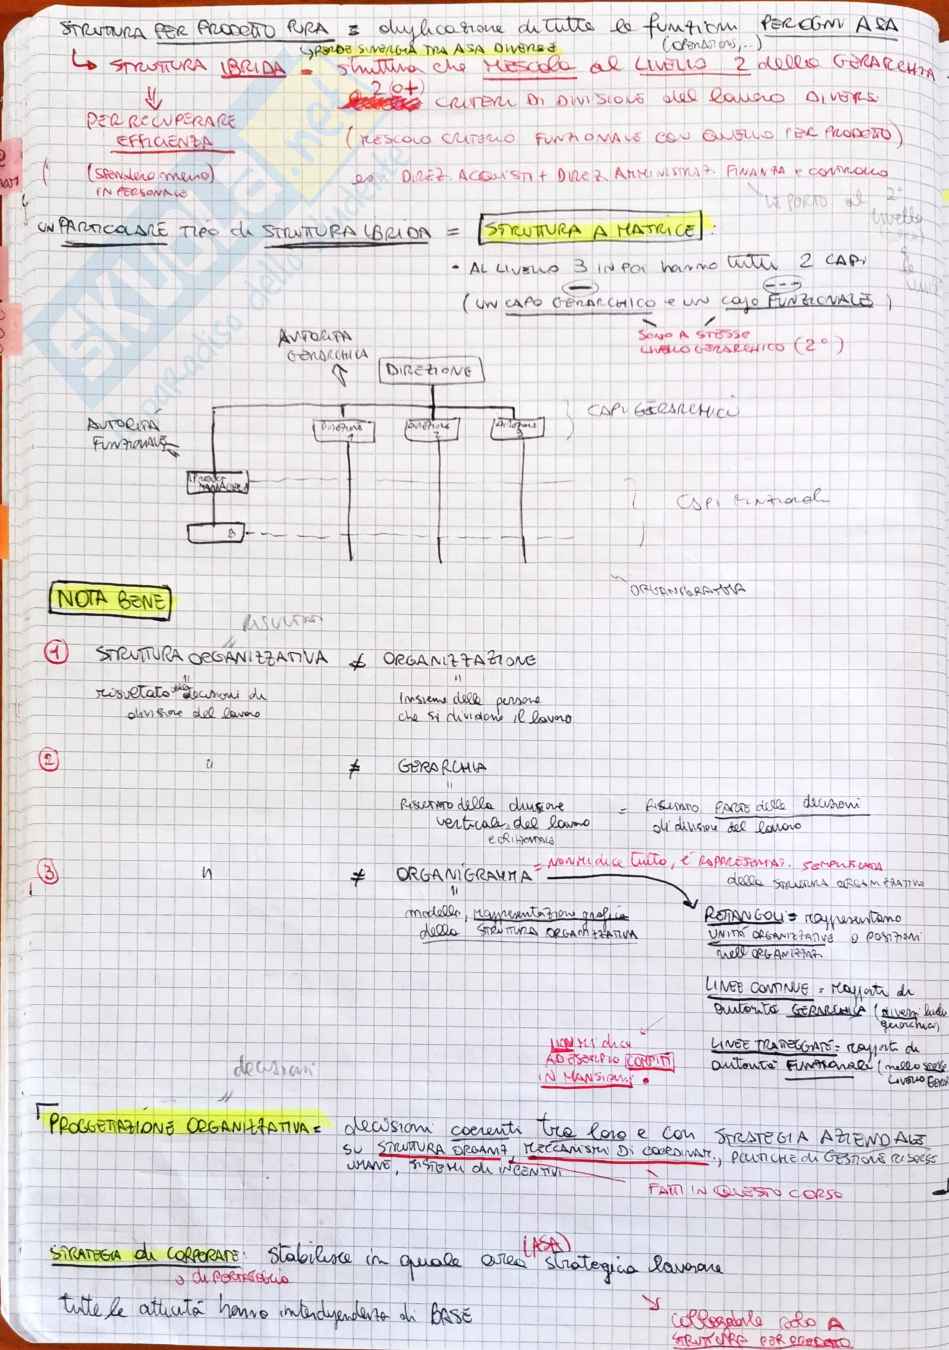 STRUTTURA PER PRODOTTO PURA = duplicazione di tutte le funzioni PER OGNI ASA
↳ PERDE SINERGIA TRA ASA DIVERSE (OPERATIONS,...)
↳ STRUTTURA IBRIDA = struttura che MESCOLA al LIVELLO 2 della GERARCHIA
2 (o+) CRITERI DI DIVISIONE del lavoro DIVERSI
PER RECUPERARE EFFICIENZA
(MESCOLO CRITERIO FUNZIONALE CON QUELLO PER PRODOTTO)
(spendere meno) IN PERSONALE
es DIREZ. ACQUISTI + DIREZ. AMMINISTRAZ. FINANZA e CONTROLLO
LE PORTO al 2° livello
UN PARTICOLARE TIPO di STRUTTURA IBRIDA = STRUTTURA A MATRICE:
• AL LIVELLO 3 IN POI hanno tutti 2 CAPI
(UN CAPO GERARCHICO e UN capo FUNZIONALE)
SONO A STESSO LIVELLO GERARCHICO (2°)
AUTORITÀ GERARCHICA
DIREZIONE
AUTORITÀ FUNZIONALE
DIREZIONE 1
DIREZIONE 2
DIREZIONE 3
CAPI GERARCHICI
PRODUCT MANAGER A
B
CAPI FUNZIONALI
ORGANIGRAMMA
NOTA BENE
RISULTATO
1 STRUTTURA ORGANIZZATIVA ≠ ORGANIZZAZIONE
risultato decisioni di divisione del lavoro
Insieme delle persone che si dividono il lavoro
2 " ≠ GERARCHIA
RISULTATO della divisione verticale del lavoro
= RISULTATO PARTE delle decisioni di divisione del lavoro
3 " ≠ ORGANIGRAMMA = NON MI dice tutto, È RAPPRESENTAZ. SEMPLIFICATA della STRUTTURA ORGANIZZATIVA
modello, rappresentazione grafica della STRUTTURA ORGANIZZATIVA
RETTANGOLI = rappresentano UNITÀ ORGANIZZATIVE o POSIZIONI nell'ORGANIZZAZ
LINEE CONTINUE = rapporti di autorità GERARCHICA (diversi livelli gerarchici)
LINEE TRATTEGGIATE = rapporti di autorità FUNZIONALE (nello stesso LIVELLO GERAR
NON MI dice AD ESEMPIO COMPITI IN MANSIONI.
decisioni
PROGGETTAZIONE ORGANIZZATIVA = decisioni coerenti tra loro e con STRATEGIA AZIENDALE
SU STRUTTURA ORGANIZ, MECCANISMI DI COORDINAM., POLITICHE di GESTIONE RISORSE
UMANE, SISTEMI di INCENTIVI
FATTI IN QUESTO CORSO
STRATEGIA di CORPORATE: stabilisce in quale area (ASA) strategica lavorare
o di PORTAFOGLIO
tutte le attività hanno interdipendenza di BASE
collegabile solo A STRUTTURA PER PRODOTTO
SKUOLA.net
il paradiso dello studente